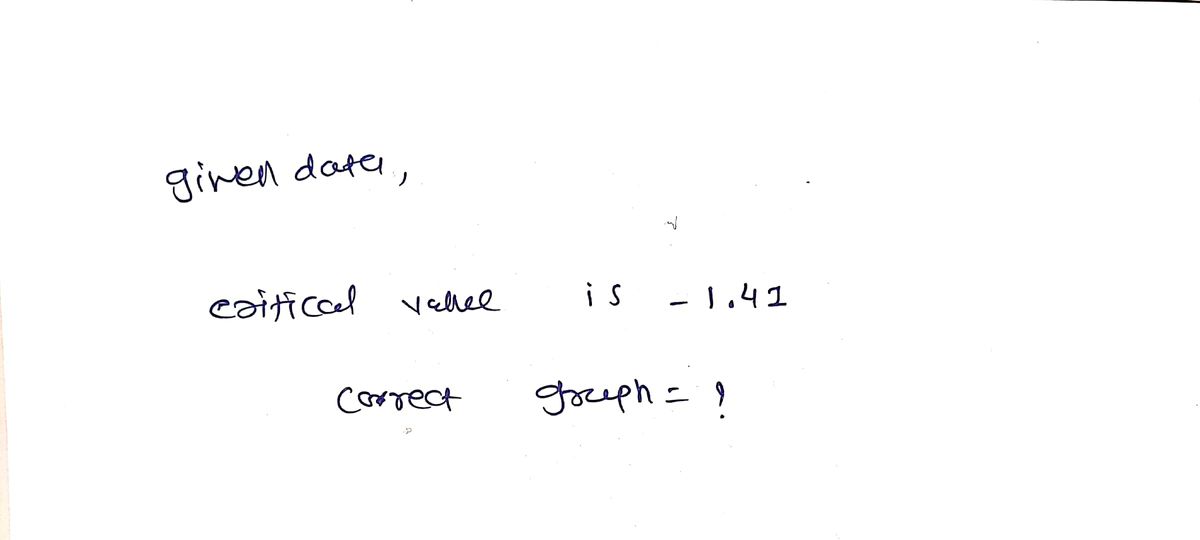 given data,
critical value is - 1.41
correct graph = ?